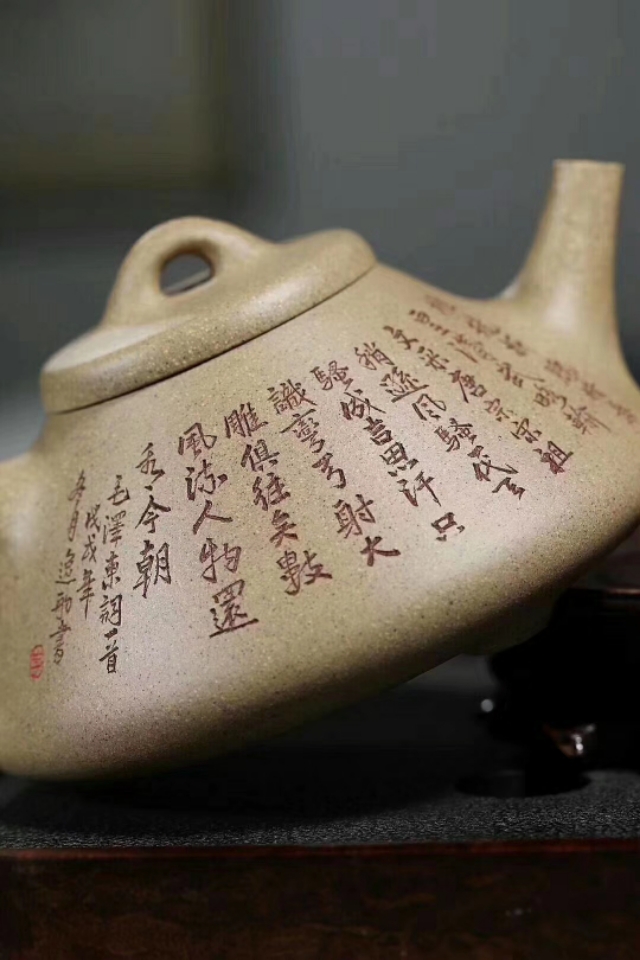 漢武略輸
文采唐宗宋祖
稍遜风騷一代天
驕成吉思汗只
識彎弓射大
雕俱往矣數
風流人物還
看今朝
毛澤東詞一首
戊戌年
冬月書